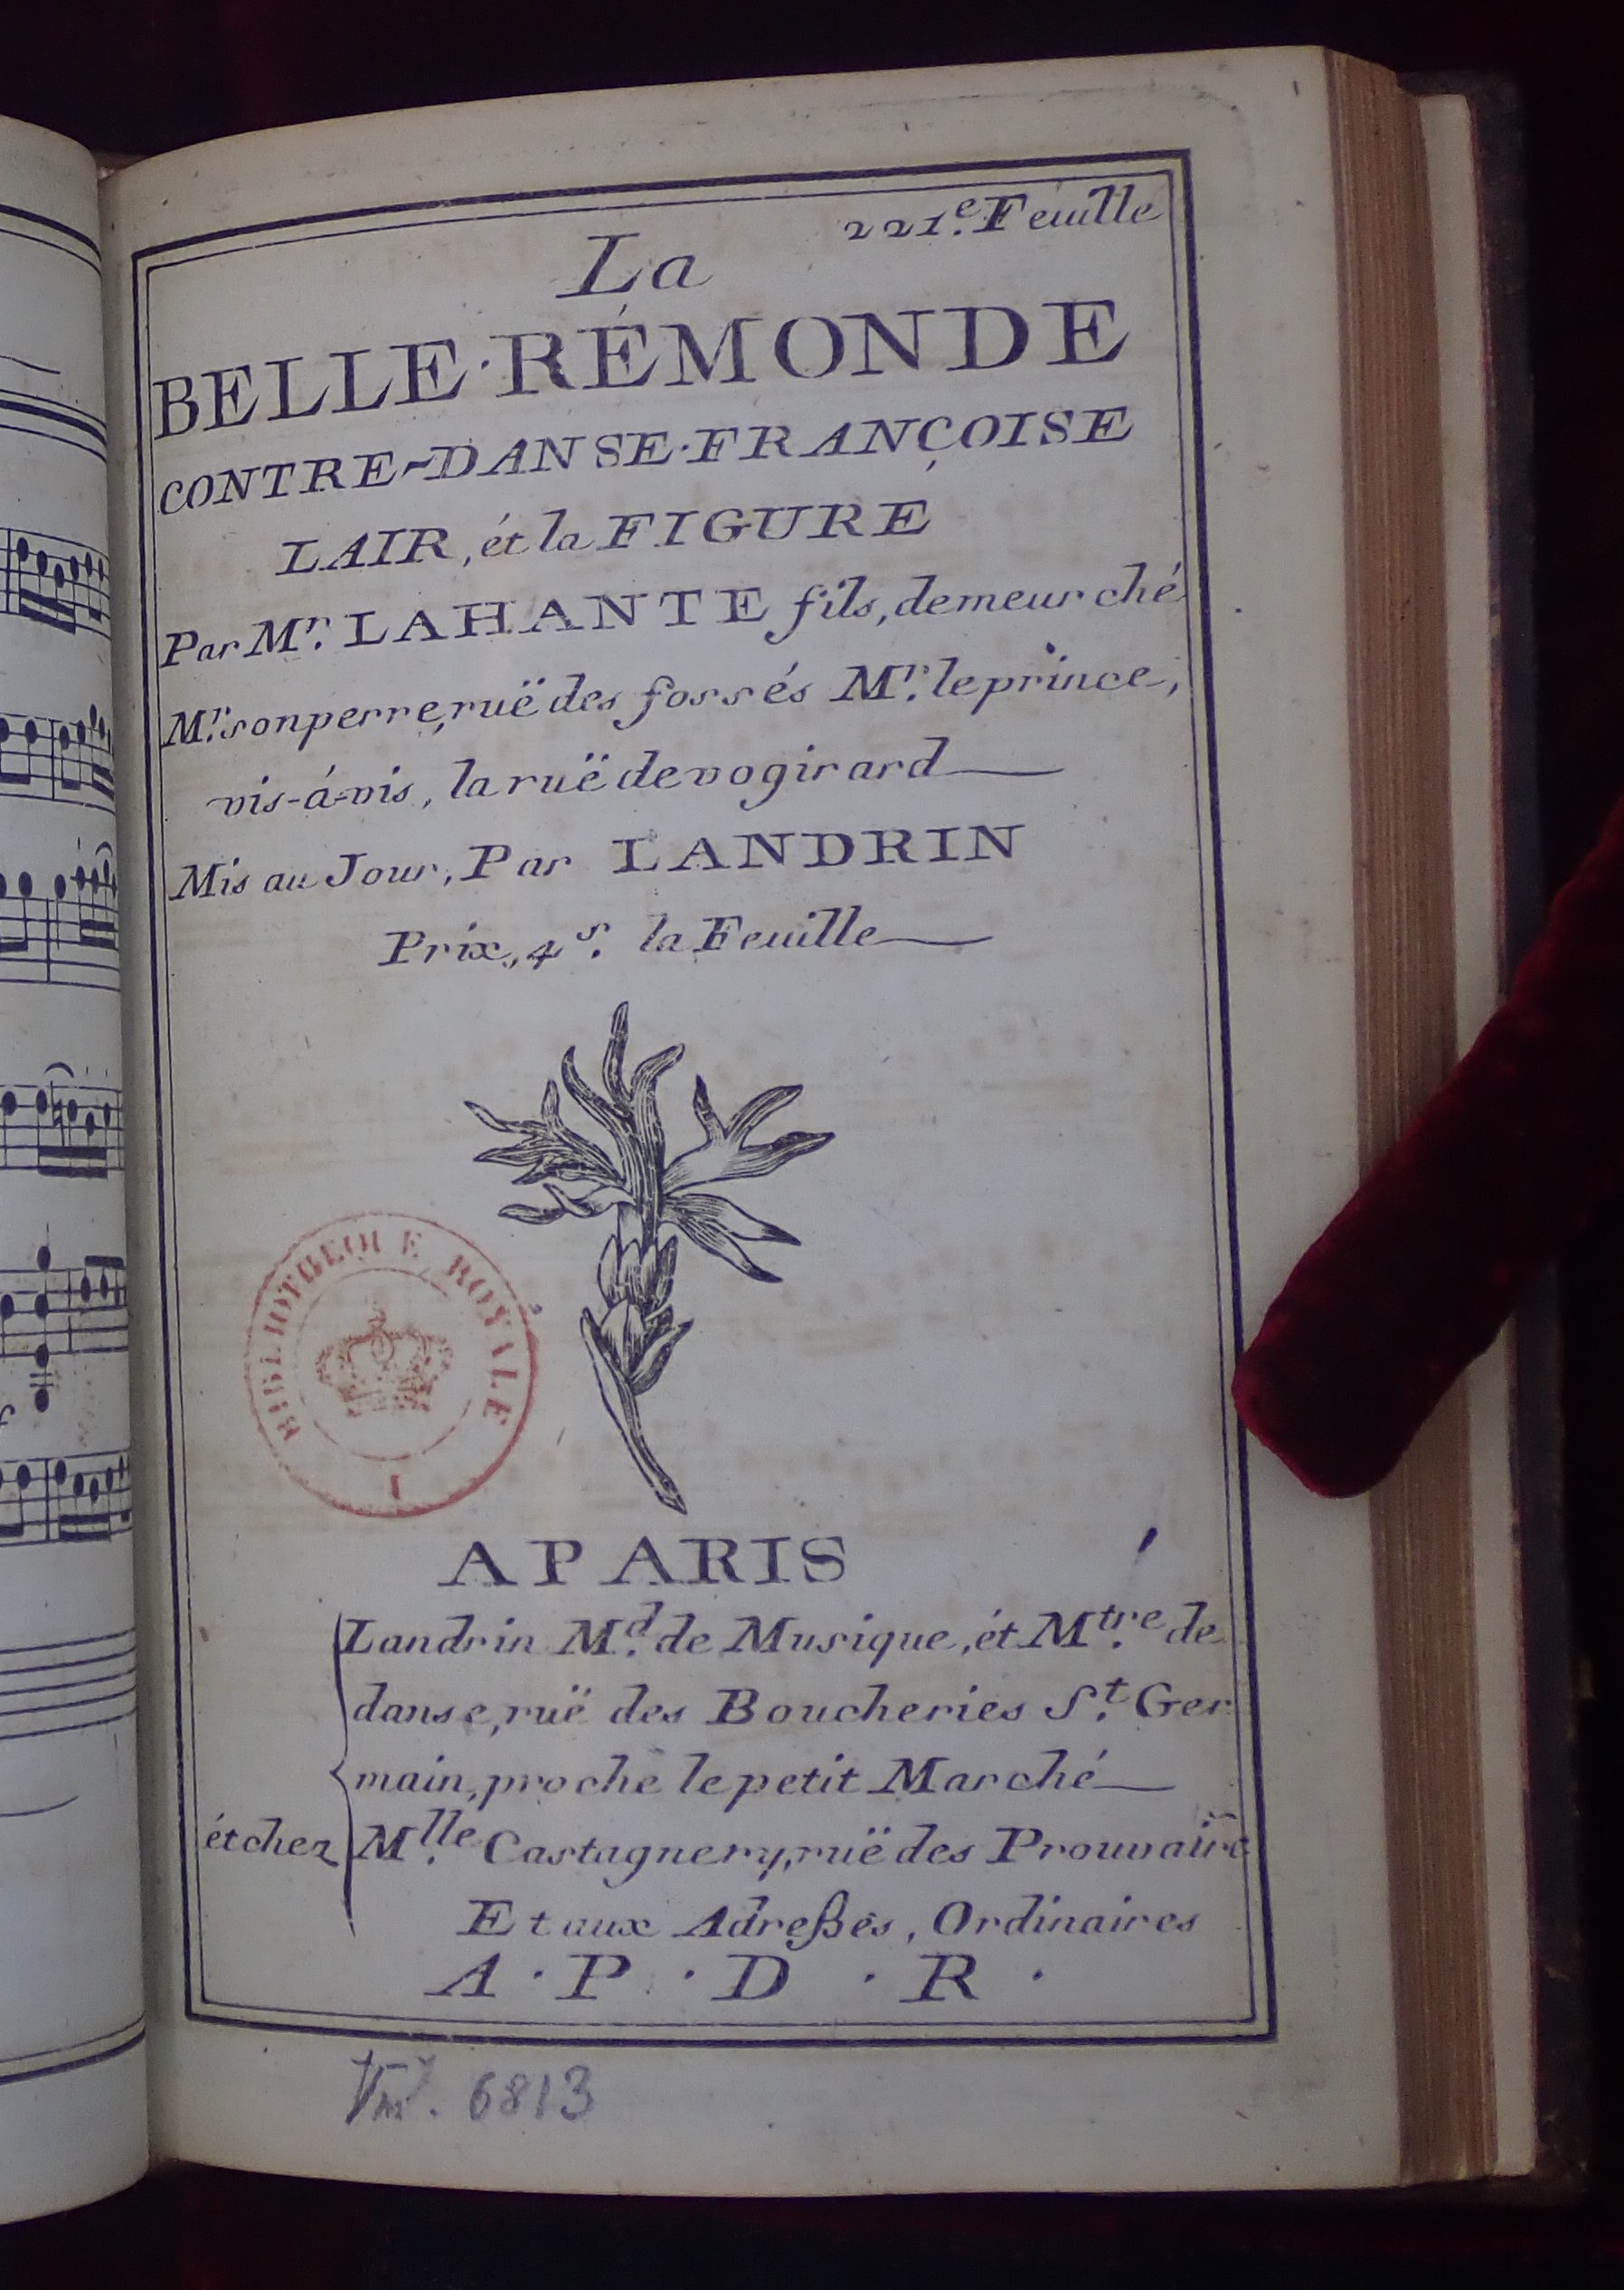 221.e Feuille
La
BELLE·RÉMONDE
CONTRE-DANSE·FRANÇOISE
LAIR, ét la FIGURE
Par Mr. LAHANTE fils, demeur ché
Mr. son perre, ruë des fossés Mr. le prince,
vis-á-vis, la ruë de vogirard
Mis au Jour, Par LANDRIN
Prix, 4s. la Feuille
BIBLIOTHEQUE ROYALE
I
A PARIS
Landrin Md. de Musique, ét Mtre. de
danse, ruë des Boucheries St. Ger
main, proche le petit Marché
ét chez Mlle. Castagnery, ruë des Prouvaire
Et aux Adreßés, Ordinaires
A · P · D · R ·
Vm7. 6813